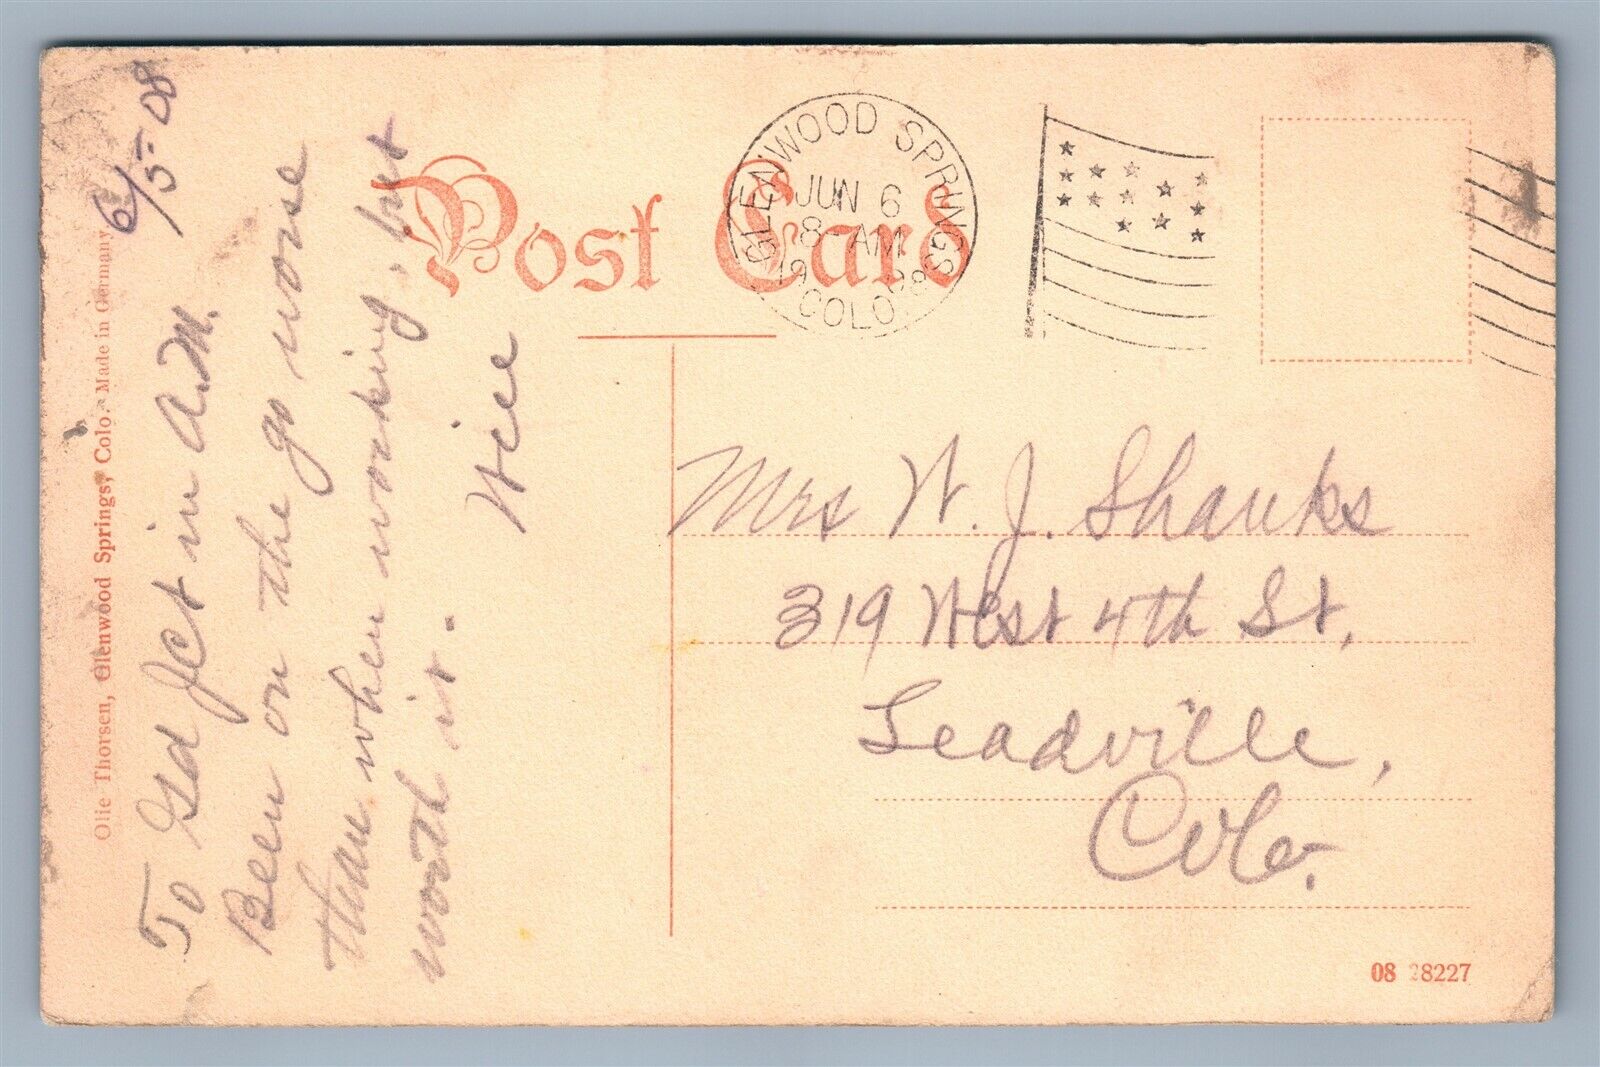 6/5-08
To Gd Jct in A.M.
Been on the go worse
than when working, but
worth it.
Olie Thorsen, Glenwood Springs, Colo. Made in Germany
Post Card
GLENWOOD SPRINGS
JUN 6
8 AM
1908
COLO.
Mrs W. J. Shanks
319 West 4th St,
Leadville,
Colo.
08 28227